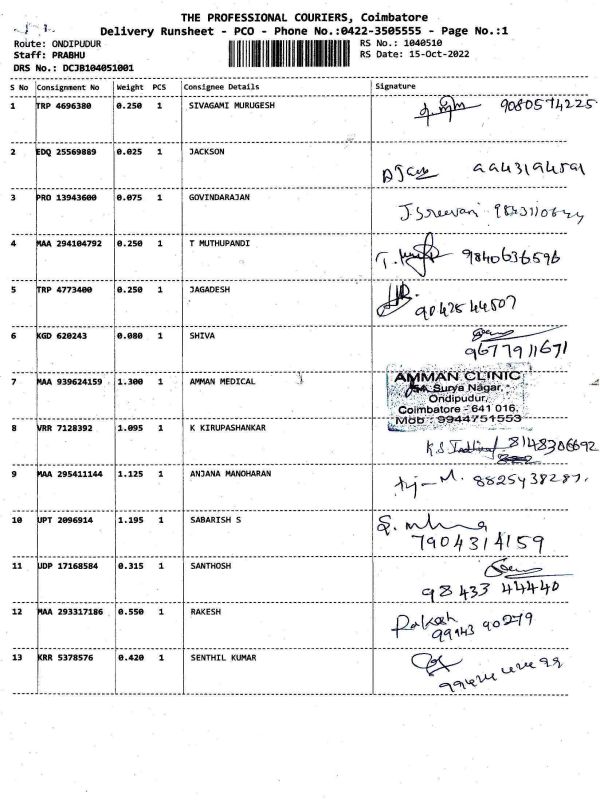 THE PROFESSIONAL COURIERS, Coimbatore
Delivery Runsheet - PCO - Phone No.:0422-3505555 - Page No.:1
Route: ONDIPUDUR RS No.: 1040510
Staff: PRABHU RS Date: 15-Oct-2022
DRS No.: DCJB104051001
S No Consignment No Weight PCS Consignee Details Signature
1 TRP 4696380 0.250 1 SIVAGAMI MURUGESH 9080574225
2 EDQ 25569889 0.025 1 JACKSON
3 PRO 13943600 0.075 1 GOVINDARAJAN
4 MAA 294104792 0.250 1 T MUTHUPANDI 9840636596
5 TRP 4773400 0.250 1 JAGADESH
9042544507
6 KGD 620243 0.080 1 SHIVA
9677911671
7 MAA 939624159 1.300 1 AMMAN MEDICAL
AMMAN CLINIC
54, Surya Nagar,
Ondipudur,
Coimbatore - 641 016.
Mob : 9944751553
8 VRR 7128392 1.095 1 K KIRUPASHANKAR
8148306692
9 MAA 295411144 1.125 1 ANJANA MANOHARAN
8825438287
10 UPT 2096914 1.195 1 SABARISH S
7904314159
11 UDP 17168584 0.315 1 SANTHOSH
98433 44440
12 MAA 293317186 0.550 1 RAKESH
Rakesh
99943 90279
13 KRR 5378576 0.420 1 SENTHIL KUMAR